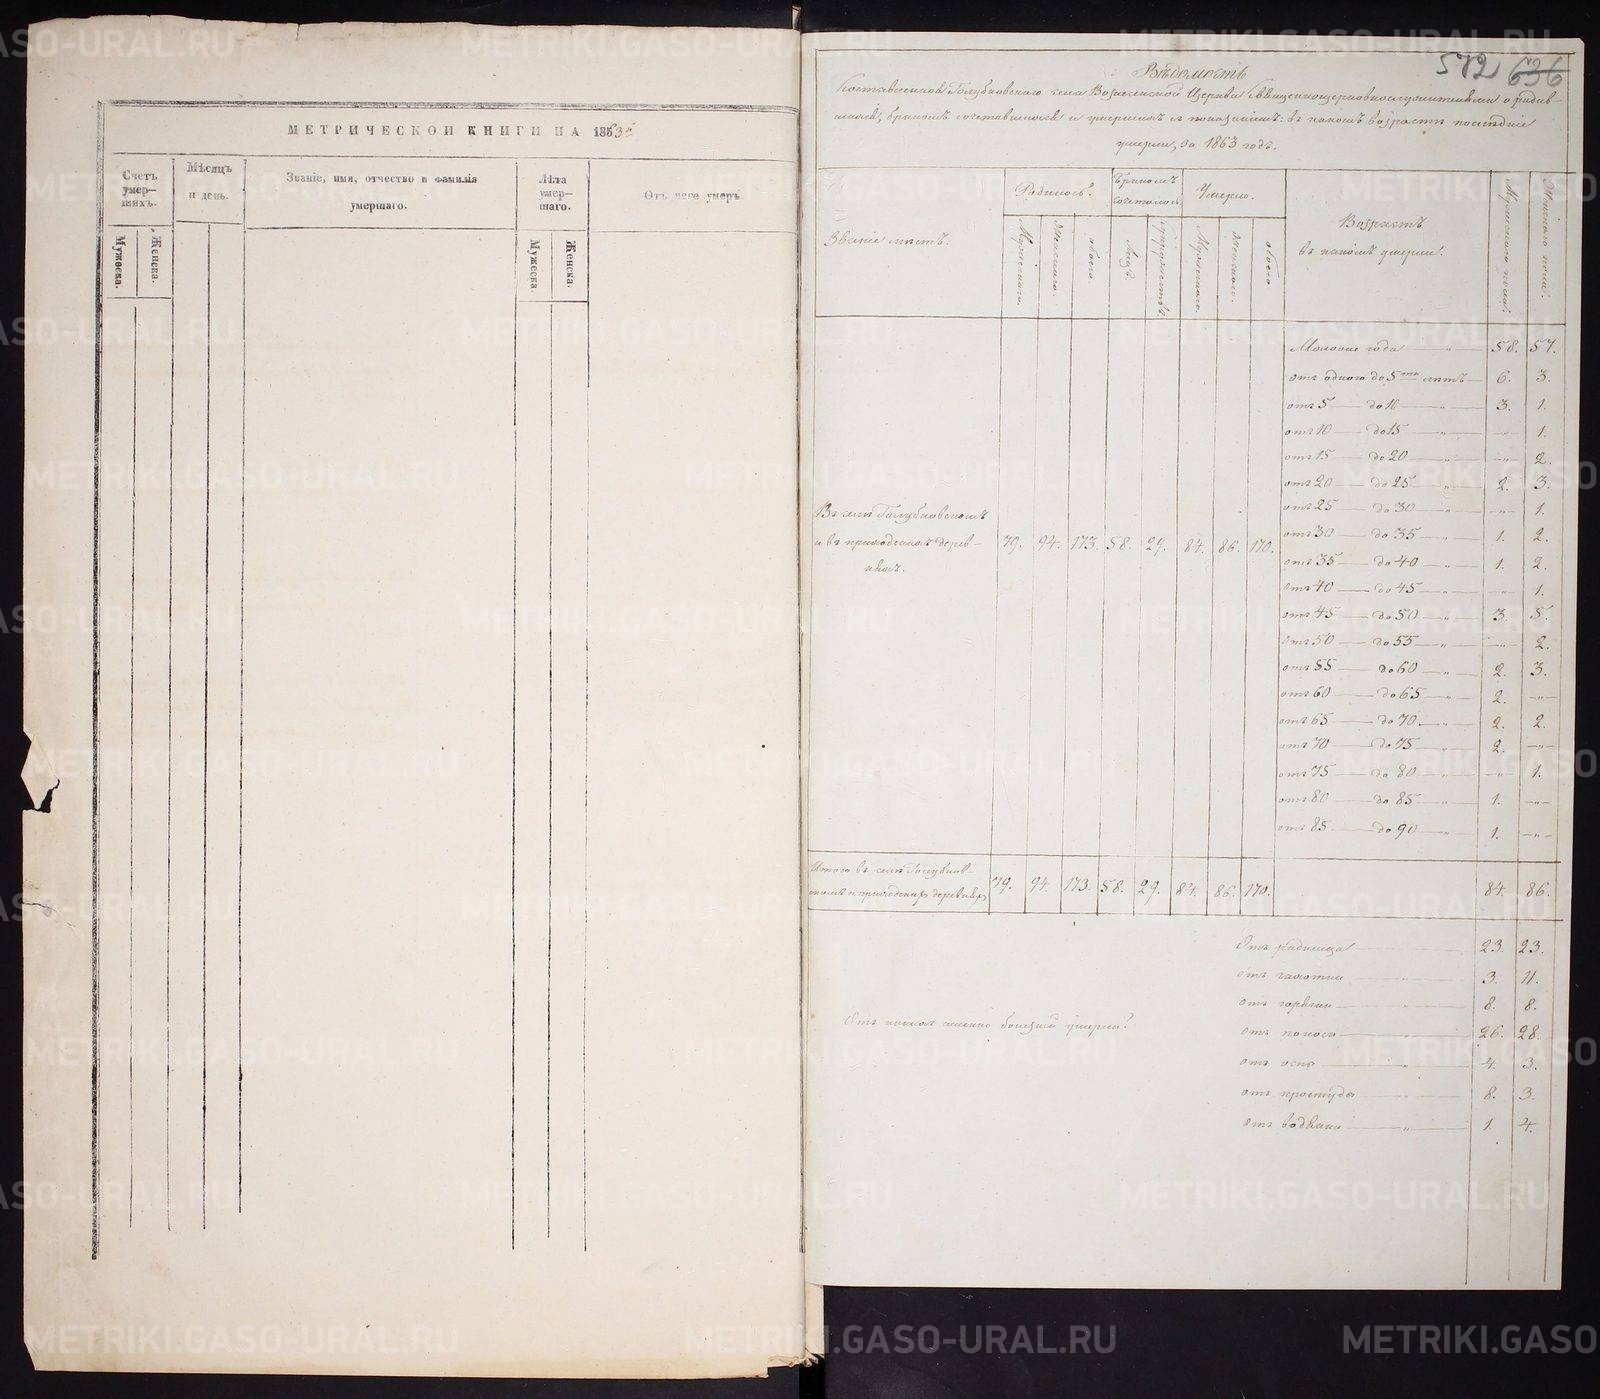 МЕТРИЧЕСКОЙ КНИГИ НА 1863
Счетъ умер-шихъ.
Мѣсяцъ и день.
Званіе, имя, отчество и фамилія умершаго.
Лѣта умер-шаго.
Отъ чего умеръ
Мужеска.
Женска.
Мужеска.
Женска.
572 636
Вѣдомость
Составленная Голубковскаго села Вознесенской Церкви священноцерковнослужителями о родив-
шихся, бракомъ сочетавшихся и умершихъ съ показаніемъ: въ какомъ возрастѣ послѣдніе
умерли, за 1863 годъ.
Званіе мѣстъ.
Родилось.
Бракомъ сочеталось.
Умерло.
Возрастъ
въ какомъ умерли.
Мужескаго пола.
Женскаго пола.
Мужескаго.
Женскаго.
обоего.
Лицъ.
Супружествъ.
Мужескаго.
Женскаго.
обоего
Моложе года 58. 57.
отъ одного до 5ти лѣтъ 6. 3.
отъ 5 до 10 " 3. 1.
отъ 10 до 15 " " 1.
отъ 15 до 20 " " 2.
отъ 20 до 25 " 2. 3.
отъ 25 до 30 " " 1.
отъ 30 до 35 " 1. 2.
отъ 35 до 40 " 1. 2.
отъ 40 до 45 " " 1.
отъ 45 до 50 " 3. 5.
отъ 50 до 55 " " 2.
отъ 55 до 60 " 2. 3.
отъ 60 до 65 " 2. "
отъ 65 до 70 " 2. 2.
отъ 70 до 75 " 2. "
отъ 75 до 80 " " 1.
отъ 80 до 85 " 1. "
отъ 85 до 90 " 1. "
Въ селѣ Голубковскомъ
и въ приходскихъ дерев-
няхъ.
79. 94. 173. 58. 29. 84. 86. 170.
Итого въ селѣ Голубков-
скомъ и приходскихъ деревняхъ
79. 94. 173. 58. 29. 84. 86. 170. 84. 86.
Отъ какихъ именно болезней умерли?
Отъ родимца 23. 23.
отъ чахотки " 3. 11.
отъ горячки " 8. 8.
отъ поноса " 26. 28.
отъ оспы " 4. 3.
отъ простуды " 8. 3.
отъ водяной " 1. 4.
METRIKI.GASO-URAL.RU